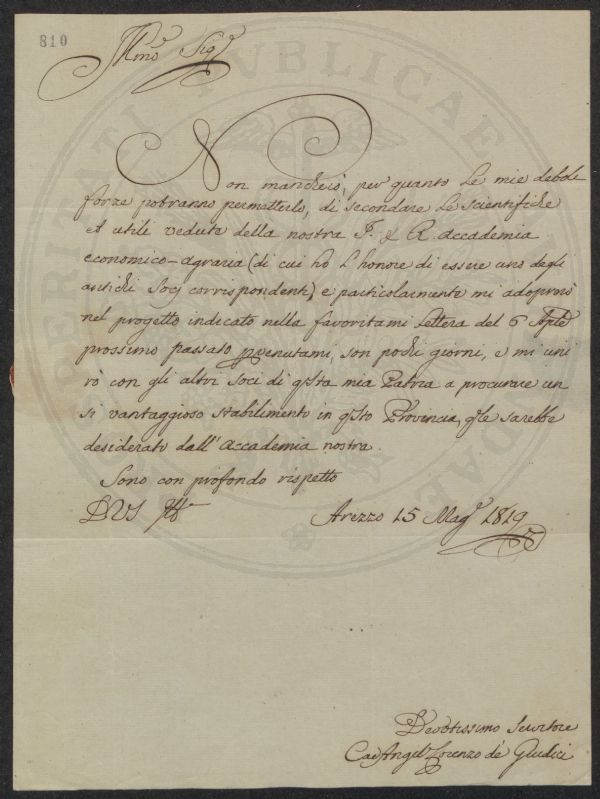 810
Illmo Sigr
Non mancherò, per quanto le mie debole
forze potranno permetterlo, di secondare le scientifiche
et utili vedute della nostra I. & R. Accademia
economico-agraria (di cui ho l honore di essere uno degli
antichi Socj corrispondenti) e particolarmente mi adoprerò
nel progetto indicato nella favoritami lettera del 6 Aple
prossimo passato pervenutami, son pochi giorni, e mi uni
rò con gli altri soci di qsta mia Patria a procurare un
si vantaggioso stabilimento in qsto Provincia, qle sarebbe
desiderato dall'Accademia nostra.
Sono con profondo rispetto
DVS
Arezzo 15 Magº 1819
Devotissimo Servitore
Angel Lorenzo de' Giudici
PUBLICAE